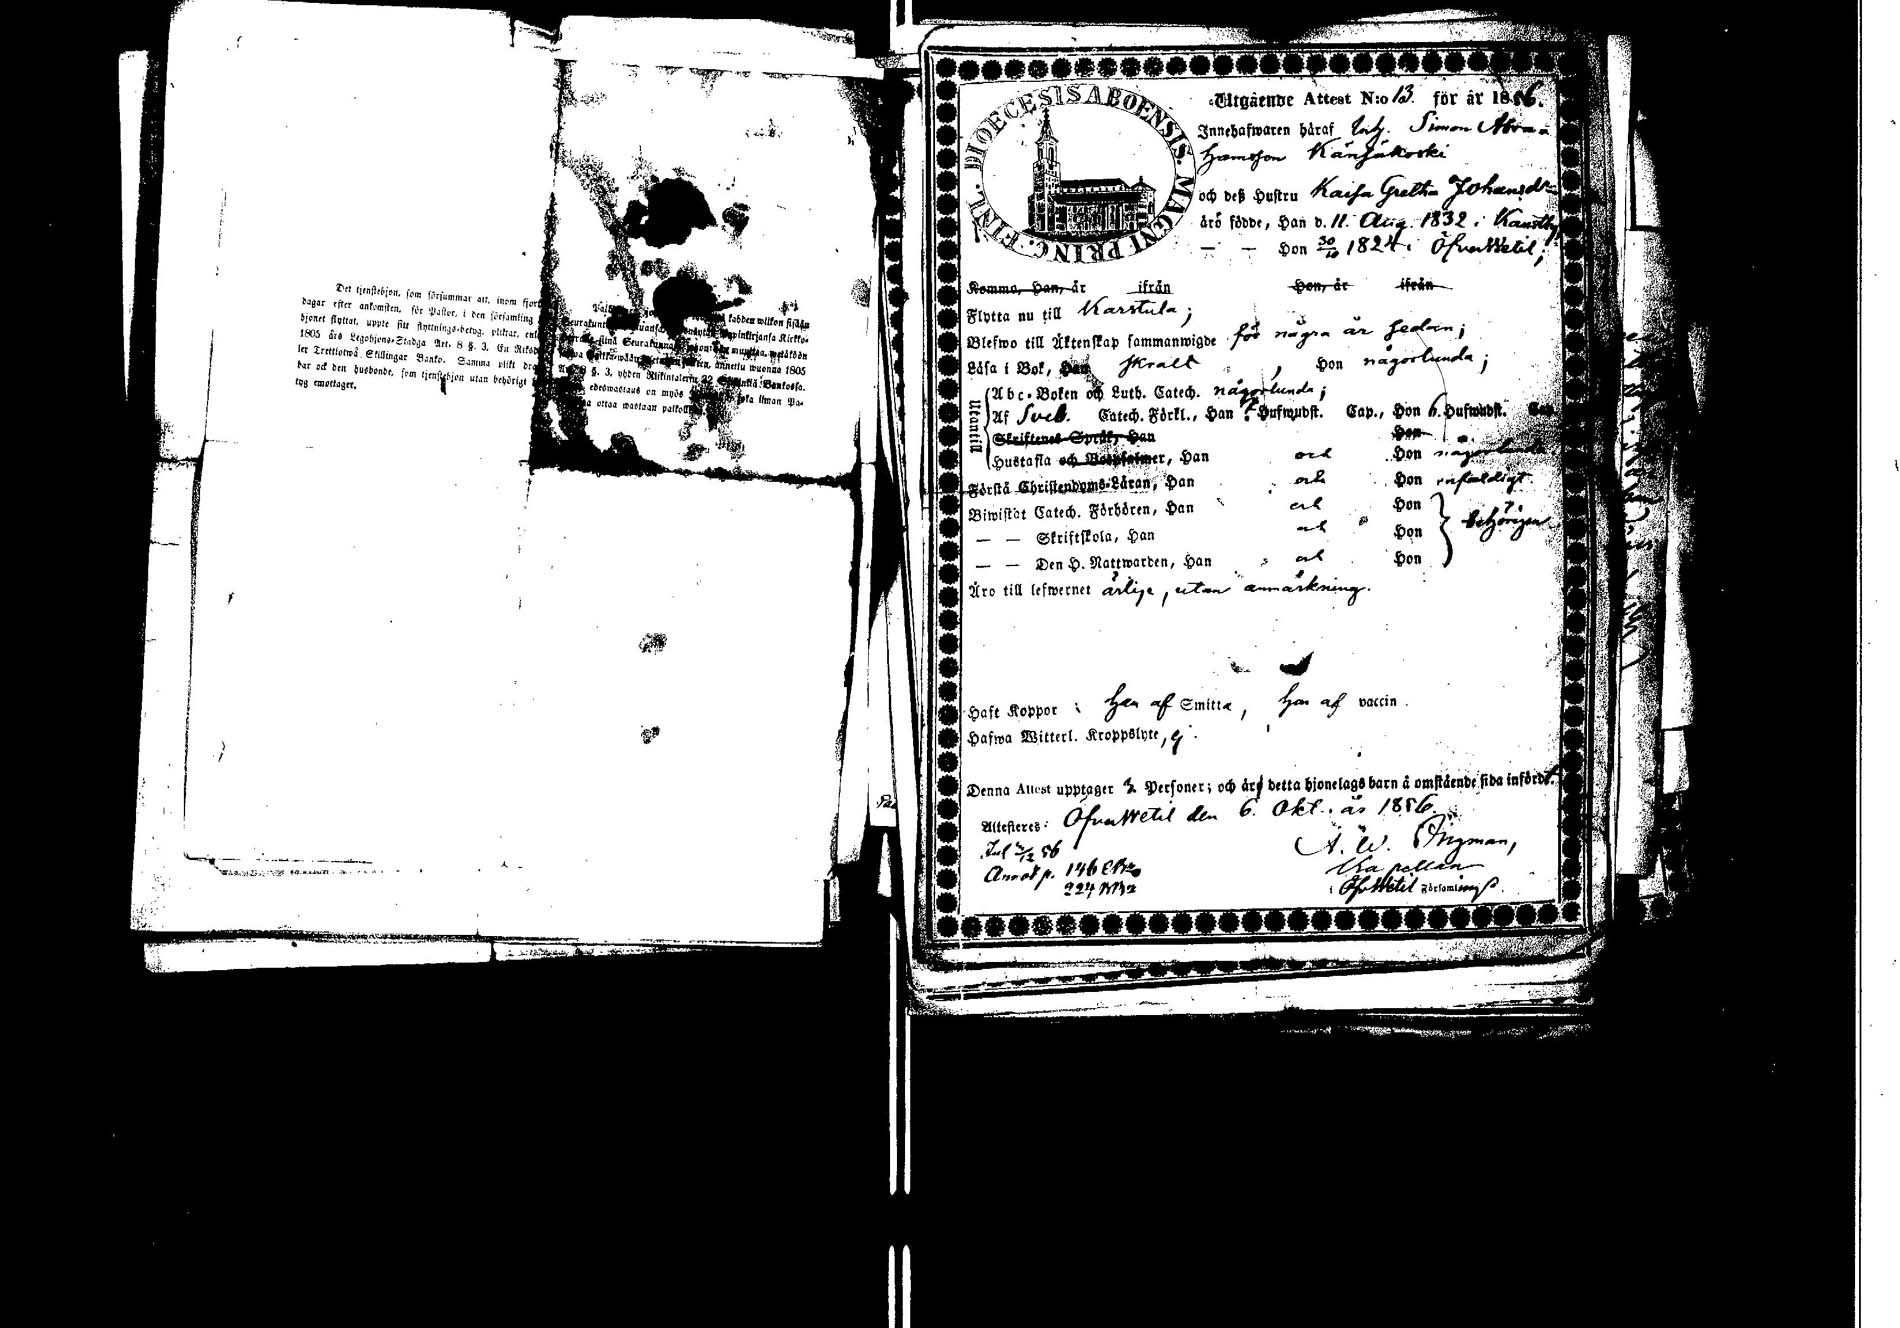 Det tjenstehjon, som försummar att, inom fjor
dagar efter ankomsten, för Pastor, i den församling
hjonet flyttat, uppte sitt flyttnings-betyg, pliktar, enl
1805 års Legohjons-Stadga Art. 8 §. 3. En Riksd
ler Trettiotwå Skillingar Banko. Samma plikt dra
bar ock den husbonde, som tjenstehjon utan behörigt
tyg emottager.
kahden wiikon sisään
Kirkko-
muuttaa,
annettu wuonna 1805
§. 3. yhden Riikintalerin 32 Bankossa.
edeswastaus on myös ilman Pa-
ottaa wastaan
DIOECESIS ABOENSIS. MAGNI PRINC. FINL.
Utgående Attest N:o 13. för år 1856.
Innehafwaren häraf Simon Abra-
hamsson
och deß Hustru Kaisa Greta Johansdr
äro födde, Han d. 11. Aug. 1832 i
— — Hon 30/10 1824 i ÖfverWetil;
Komma, Han, är ifrån Hon, är ifrån
Flytta nu till Karstula;
Blefwo till Äktenskap sammanwigde för några år sedan;
Läsa i Bok, Han skralt, Hon någorlunda;
Utantill
Abc-Boken och Luth. Catech. någorlunda;
Af Sveb. Catech. Förkl., Han Hufwudst. Cap., Hon 6. Hufwudst. Cap.
Skriftenes Språk, Han Hon
Hustafla och Botpsalmer, Han och Hon någorlunda
Förstå Christendoms-Läran, Han och Hon enfaldigt
Biwistat Catech. Förhören, Han och Hon
— — Skriftskola, Han och Hon behörigen
— — Den H. Nattwarden, Han och Hon
Äro till lefwernet ärlige, utan anmärkning.
Haft Koppor: han af Smitta, hon af vaccin.
Hafwa Witterl. Kroppslyte, ej.
Denna Attest upptager Personer; och är detta hjonelags barn å omstående sida infördt.
Attesteras: ÖfverWetil den 6. Okt. år 1856.
A. W. Ingman,
Annot p. 146
Kapellan
224
i ÖfvWetil Församling